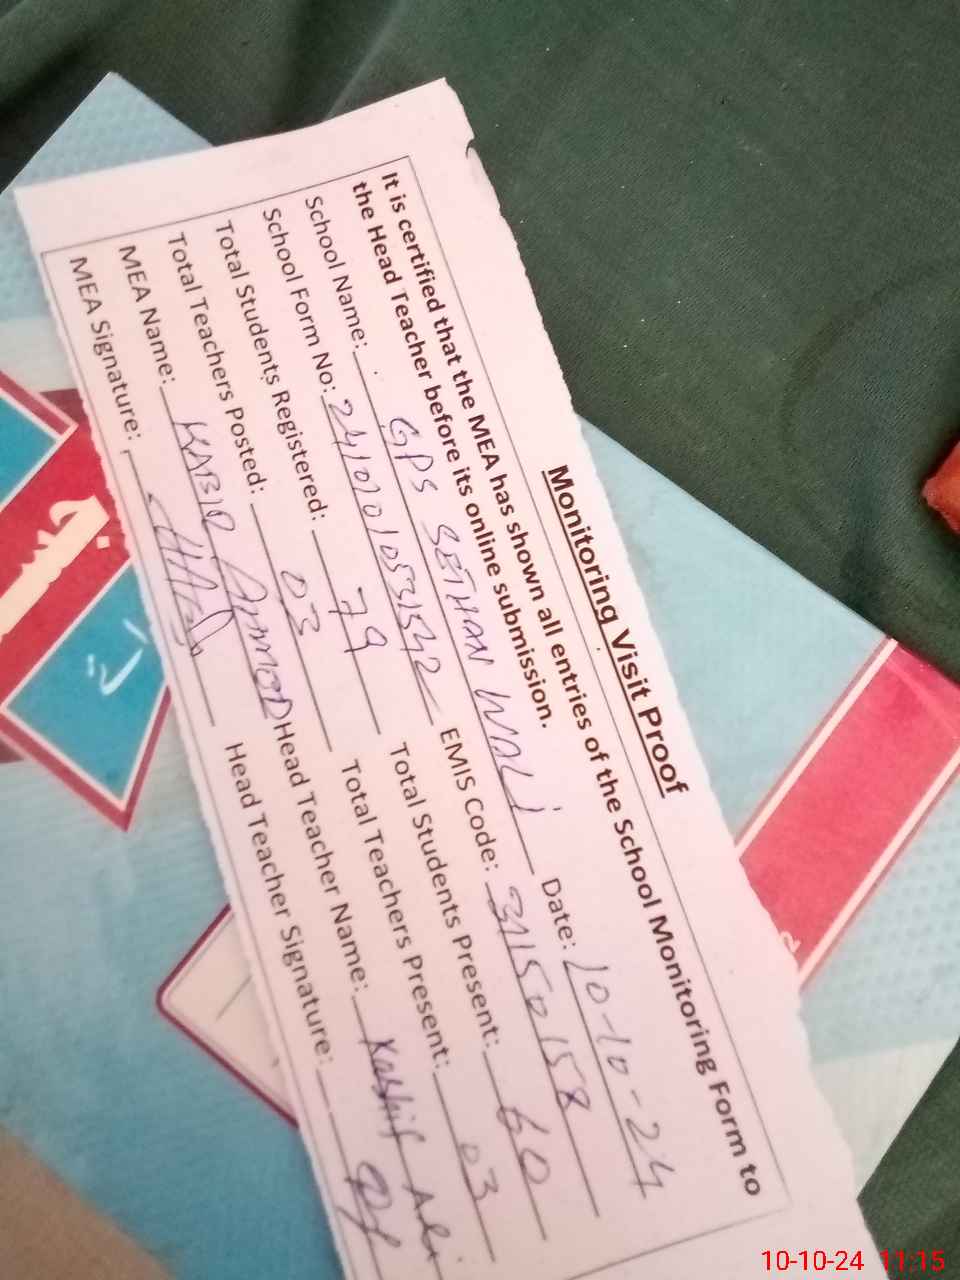 Monitoring Visit Proof
It is certified that the MEA has shown all entries of the School Monitoring Form to
the Head Teacher before its online submission.
School Name: GPS SETHAN WALI Date: 10-10-24
School Form No: EMIS Code: 31150158
Total Students Registered: 79 Total Students Present: 60
Total Teachers Posted: 03 Total Teachers Present: 03
MEA Name: KABIR AHMED Head Teacher Name: Kashif Ali
MEA Signature: Head Teacher Signature:
10-10-24 11:15